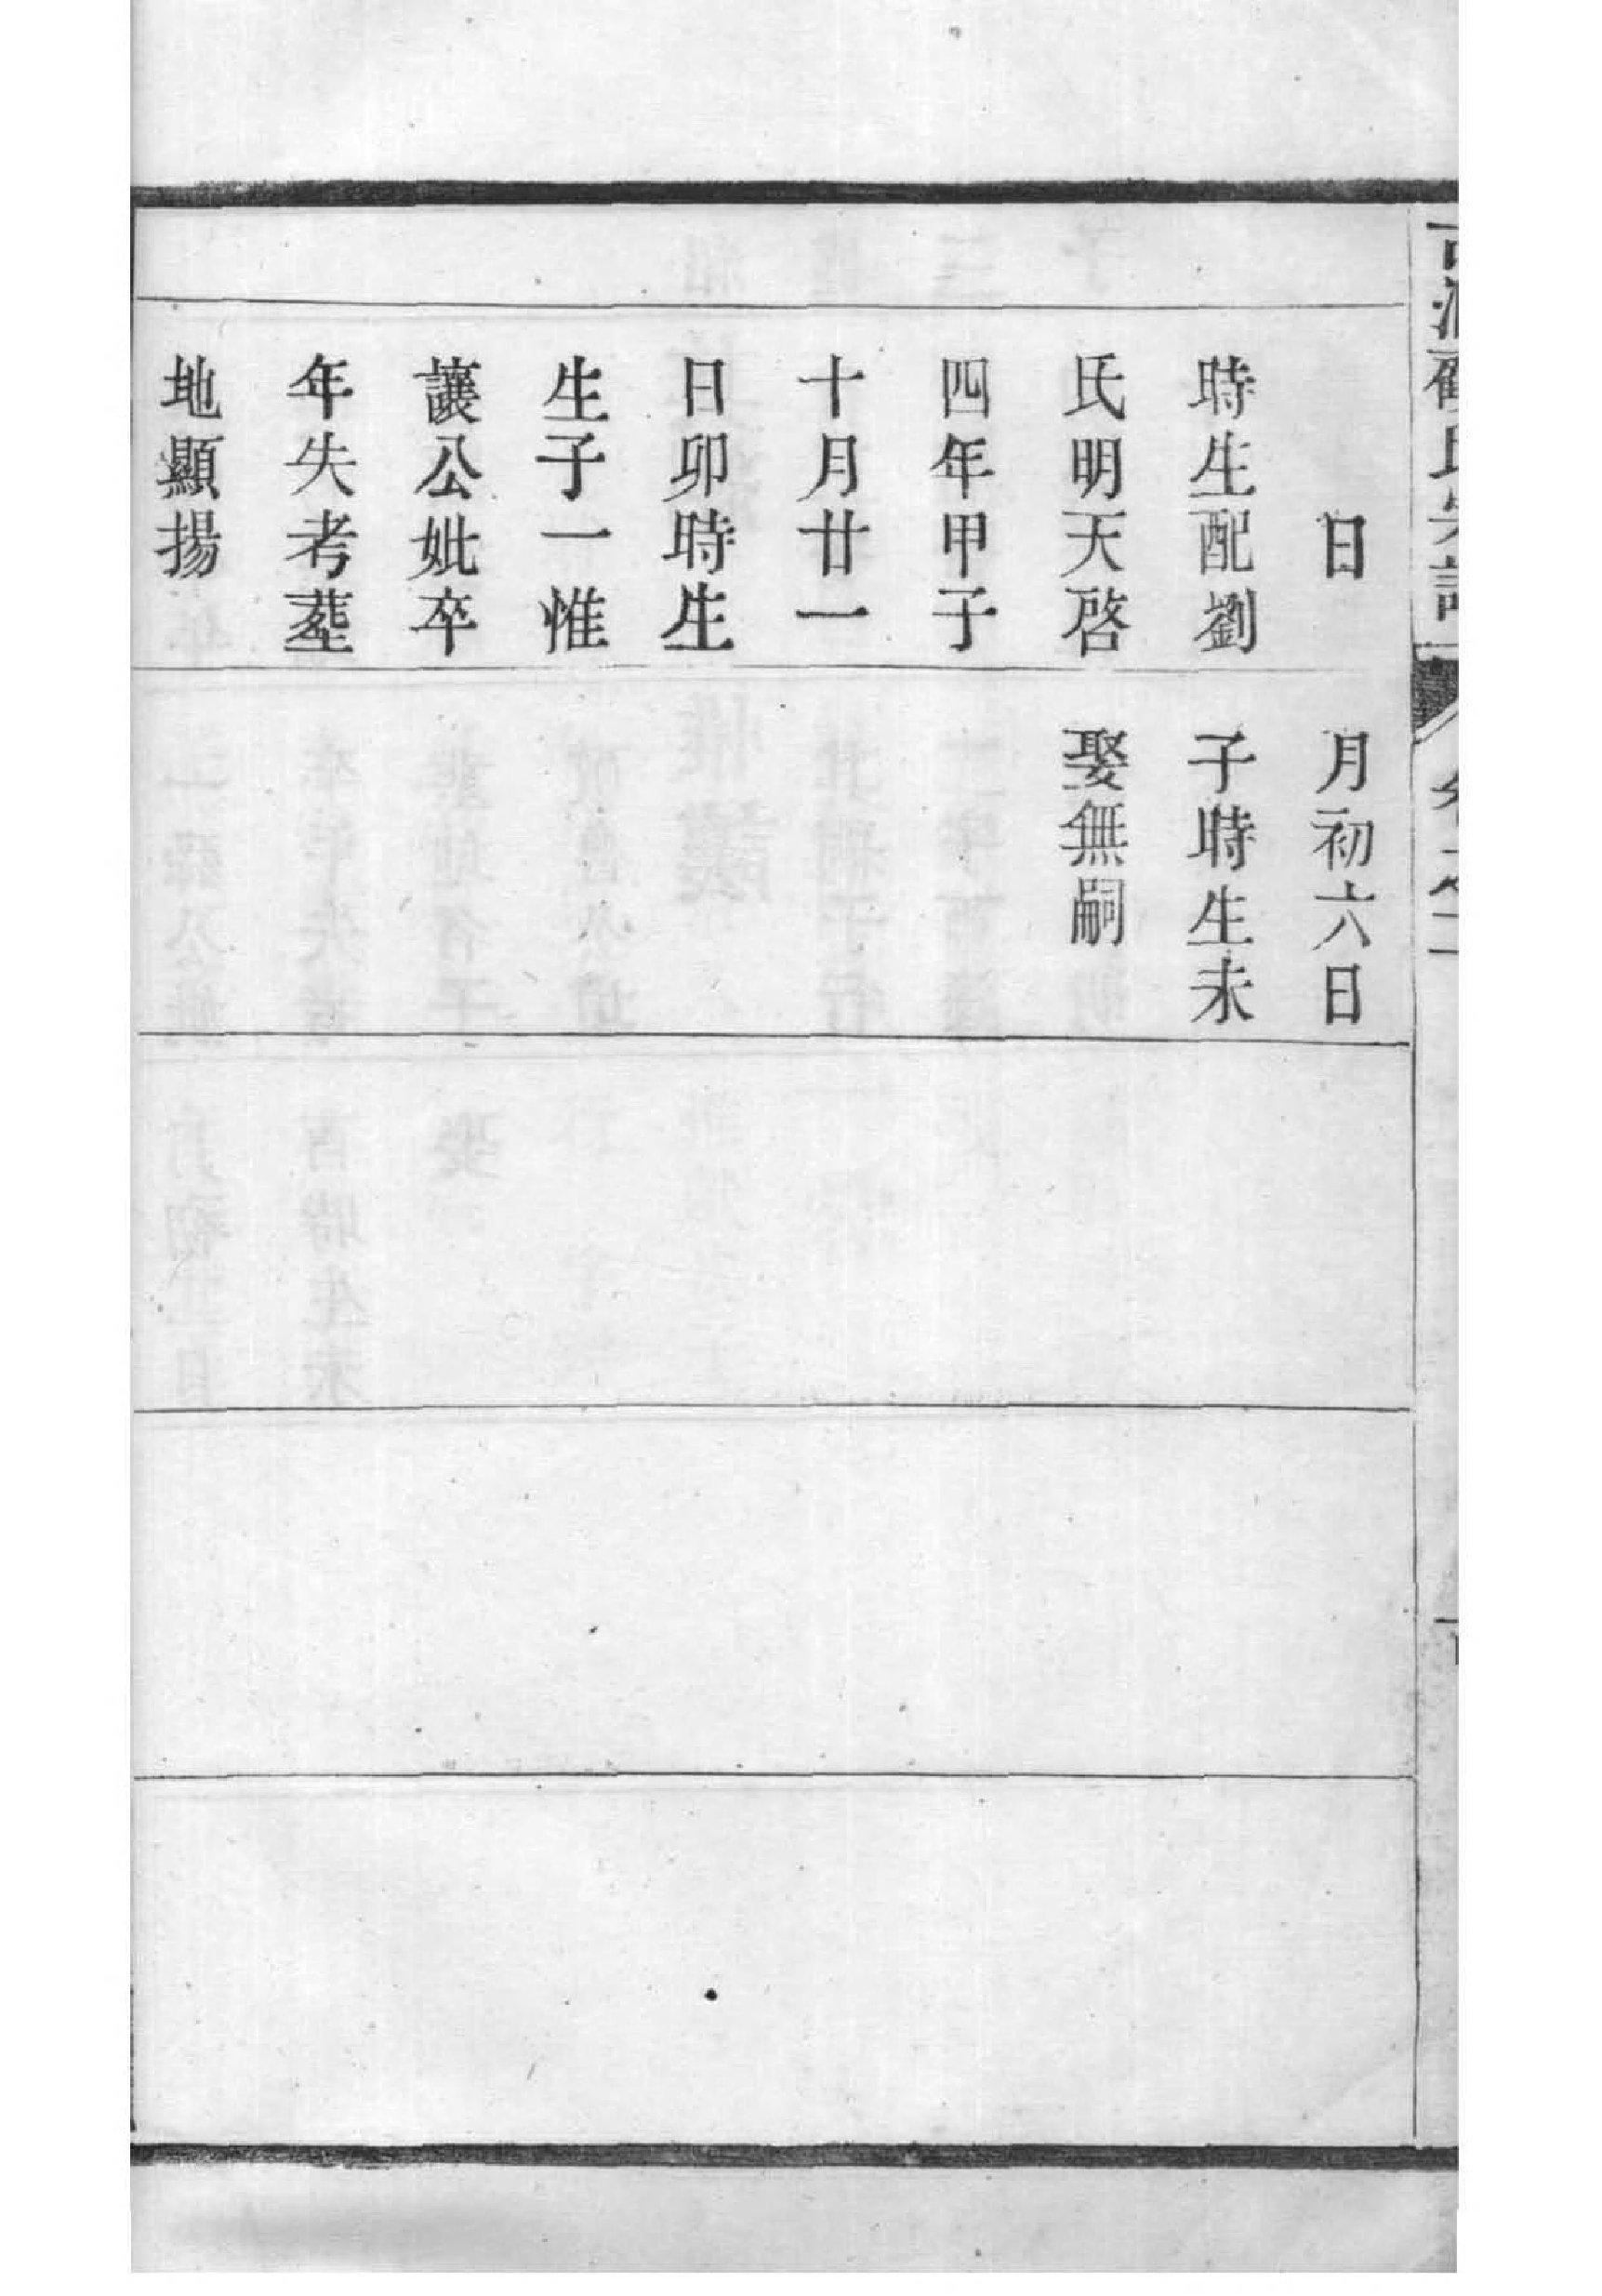 日
時生配劉
氏明天啓
四年甲子
十月廿一
日卯時生
生子一惟
讓公妣卒
年失考塟
地顯揚
月初六日
子時生未
娶無嗣